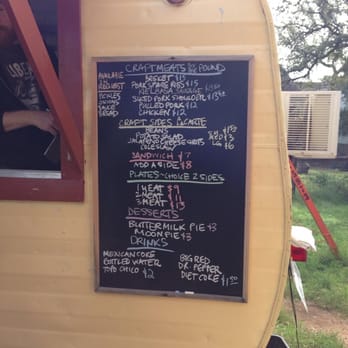 CRAFT MEATS BY THE POUND
AVAILABLE
BRISKET $15
PORK SPARE RIBS $15
SAUSAGE
SLICED PORK SHOULDER $13
PULLED PORK $12
CHICKEN $12
PICKLES
ONIONS
SAUCE
BREAD
CRAFT SIDES A LA CARTE
BEANS
POTATO SALAD
JALAPEÑO CHEESE GRITS
COLESLAW
MED $3
LG $6
SANDWICH $7
ADD A SIDE $8
PLATES - CHOICE 2 SIDES
1 MEAT $9
2 MEAT $11
3 MEAT $13
DESSERTS
BUTTERMILK PIE $3
MOON PIE $3
DRINKS
MEXICAN COKE
BOTTLED WATER
TOPO CHICO $2
BIG RED
DR. PEPPER
DIET COKE $1.50